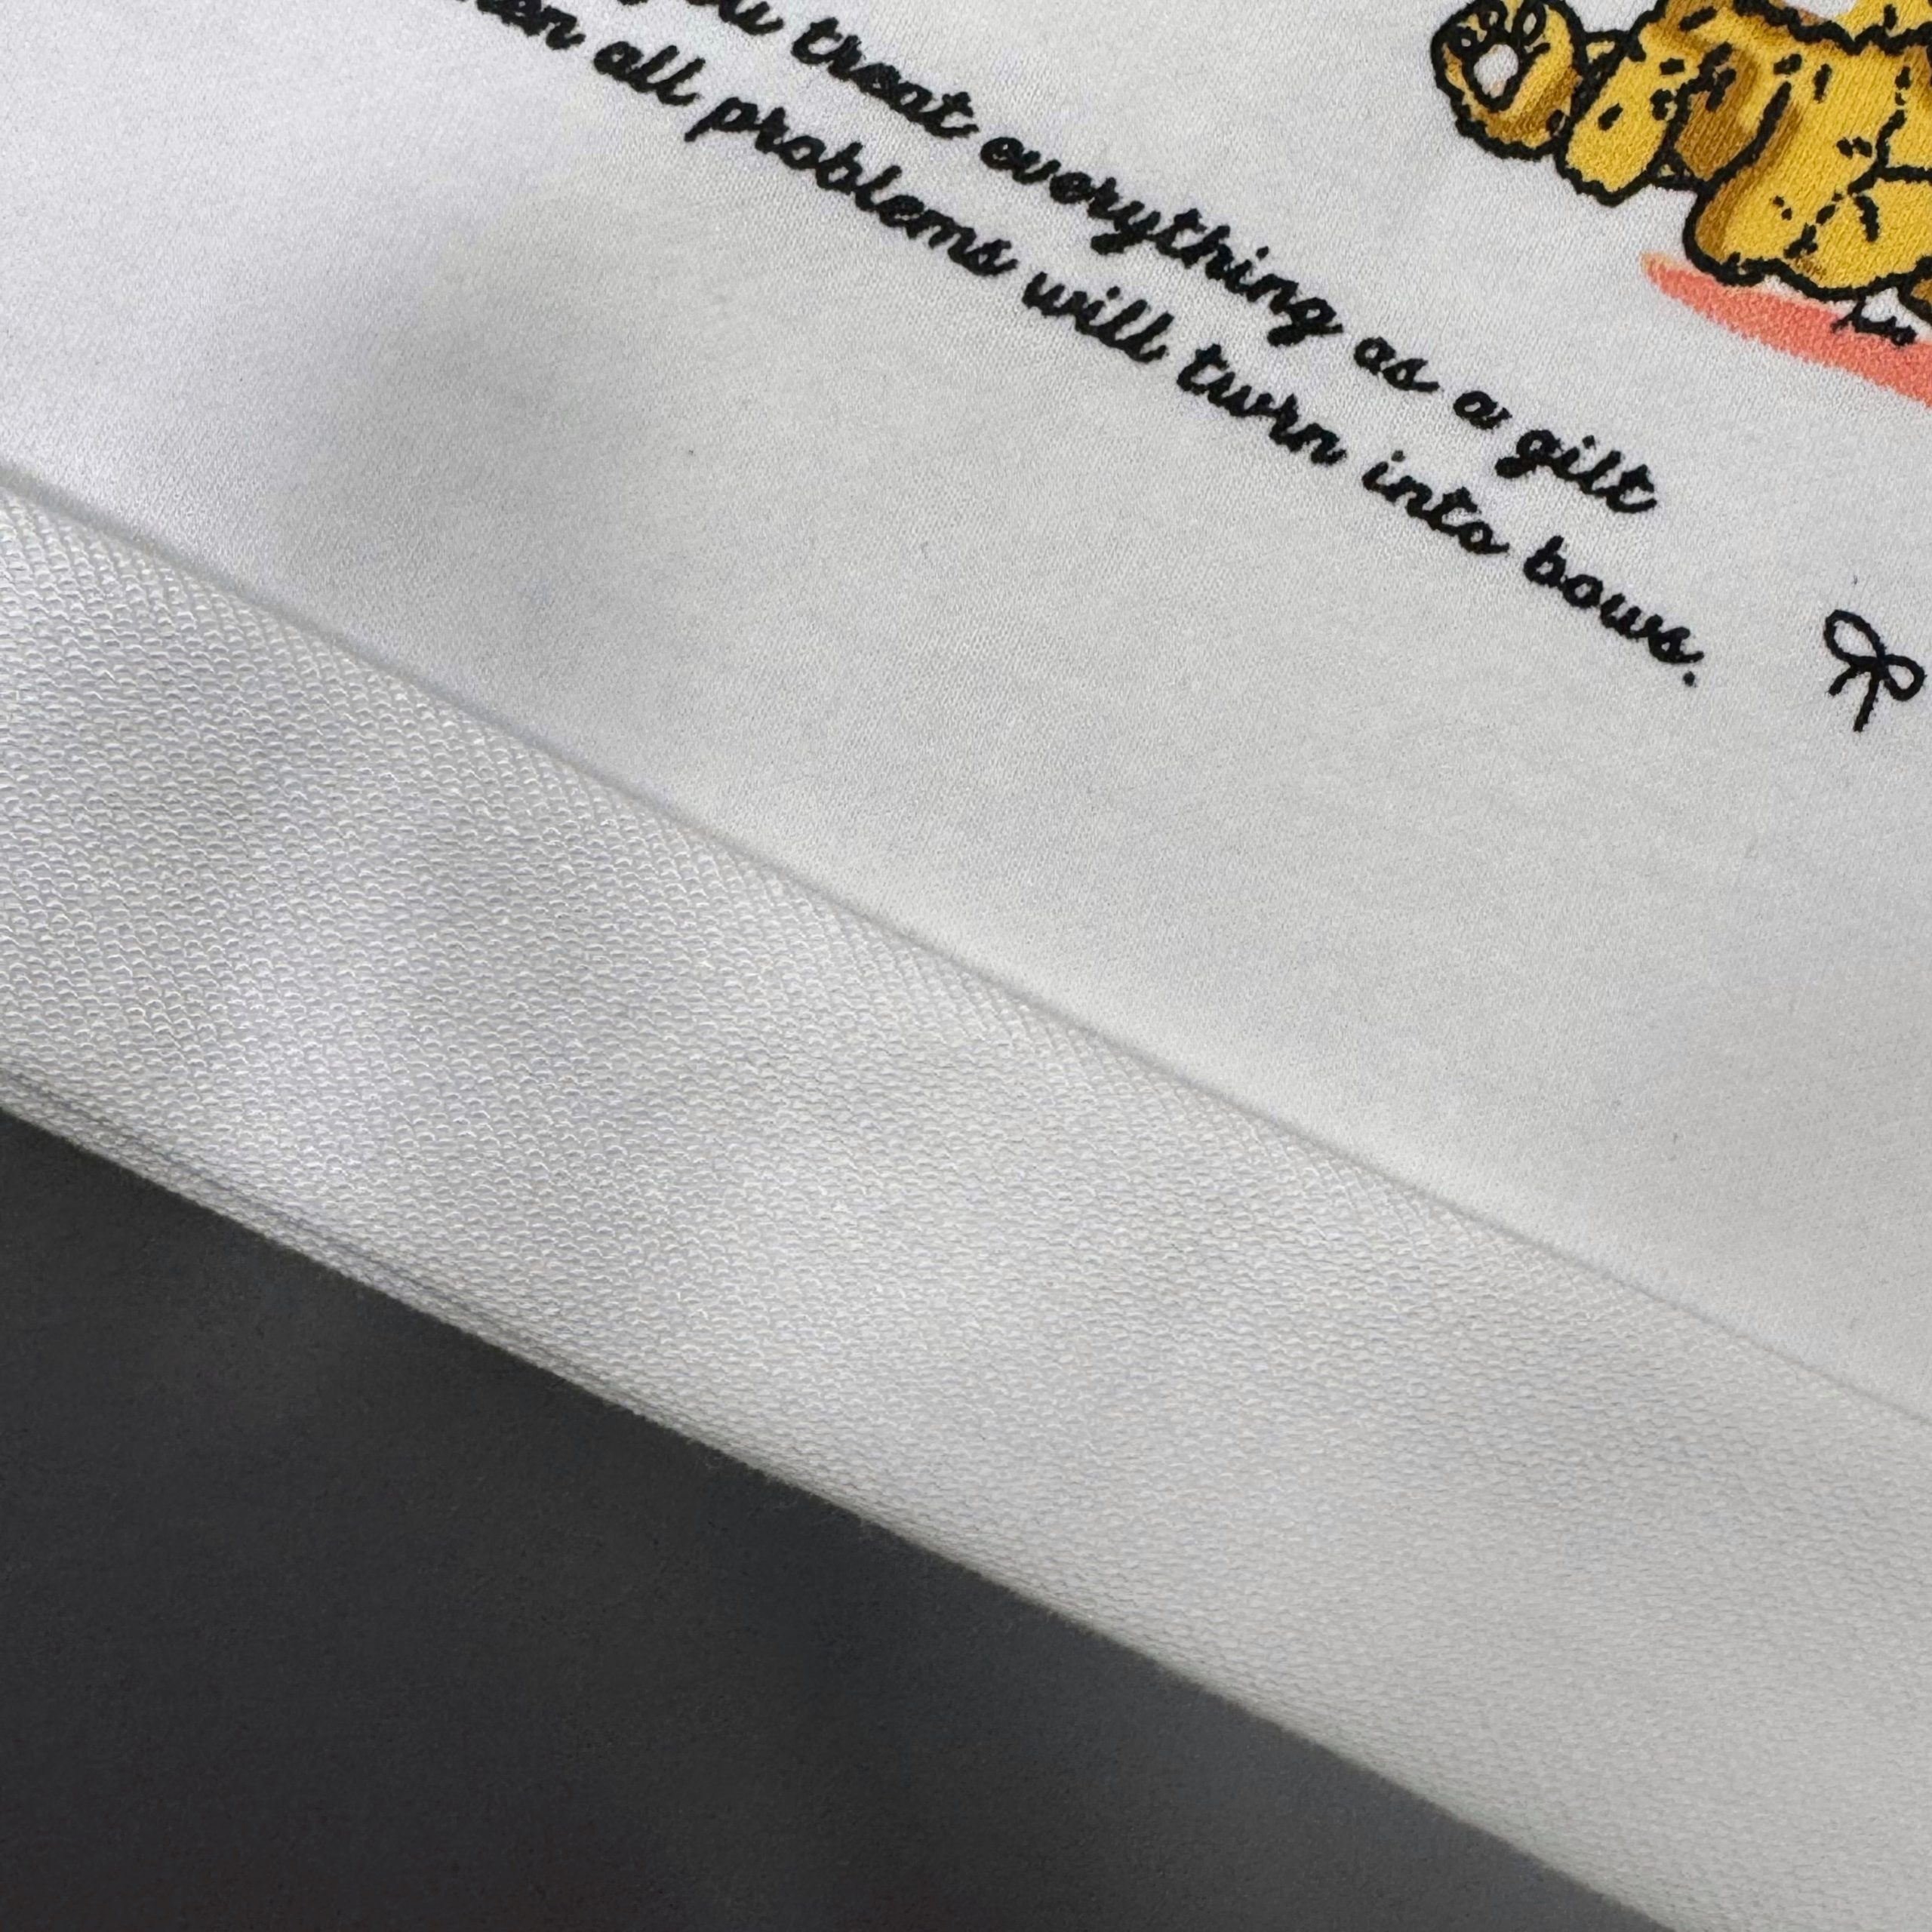 treat everything as a gilt
all problems will turn into bows.